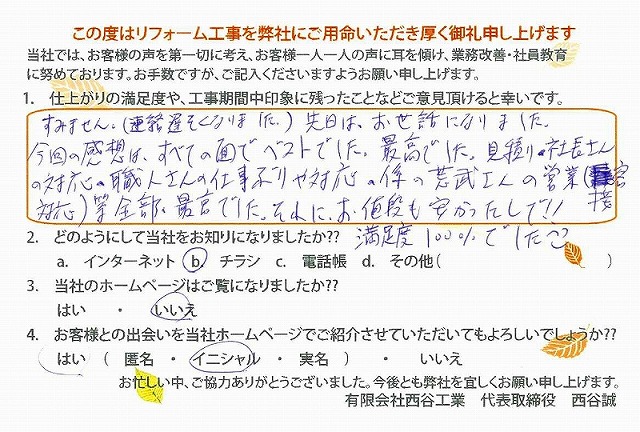 この度はリフォーム工事を弊社にご用命いただき厚く御礼申し上げます
当社では、お客様の声を第一切に考え、お客様一人一人の声に耳を傾け、業務改善・社員教育
に努めております。お手数ですが、ご記入くださいますようお願い申し上げます。
1. 仕上がりの満足度や、工事期間中印象に残ったことなどご意見頂けると幸いです。
すみません。(連絡遅くなりました。) 先日は、お世話になりました。
今回の感想は、すべての面でベストでした。最高でした。見積り・社長さん
の対応・職人さんの仕事ぶりや対応・係の荒武さんの営業(接客
対応)等全部、最高でした。それに、お値段も安かったしで!!
2. どのようにして当社をお知りになりましたか?? 満足度100%でした
a. インターネット b. チラシ c. 電話帳 d. その他( )
3. 当社のホームページはご覧になりましたか??
はい ・ いいえ
4. お客様との出会いを当社ホームページでご紹介させていただいてもよろしいでしょうか??
はい ( 匿名 ・ イニシャル ・ 実名 ) ・ いいえ
お忙しい中、ご協力ありがとうございました。今後とも弊社を宜しくお願い申し上げます。
有限会社西谷工業 代表取締役 西谷誠